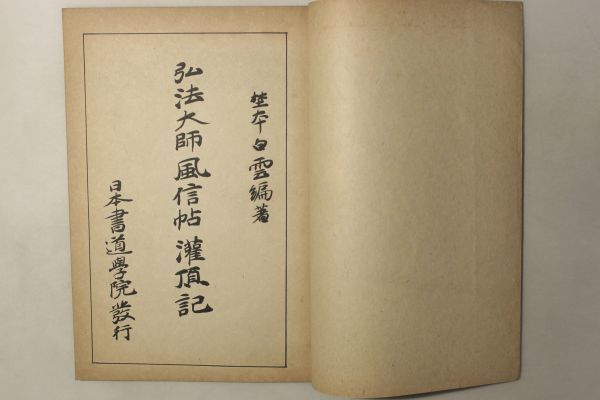 埜本白雲編著
弘法大師風信帖灌頂記
日本書道學院發行